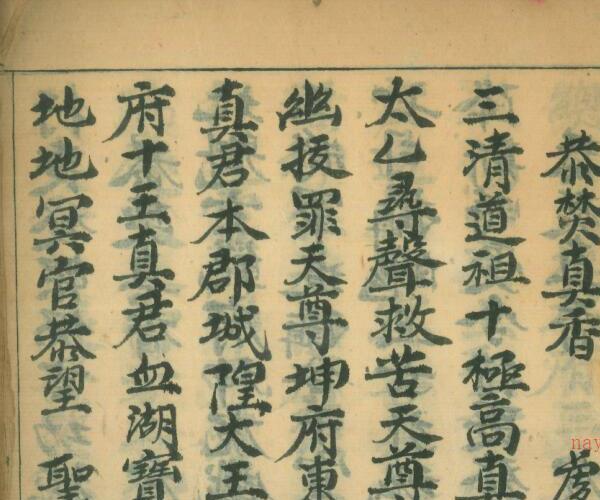 恭焚真香 虔
三清道祖十極高真
太乙尋聲救苦天尊
幽拔罪天尊坤府東
真君本郡城隍大王
府十王真君血湖寳
地地冥官恭望 聖
nay